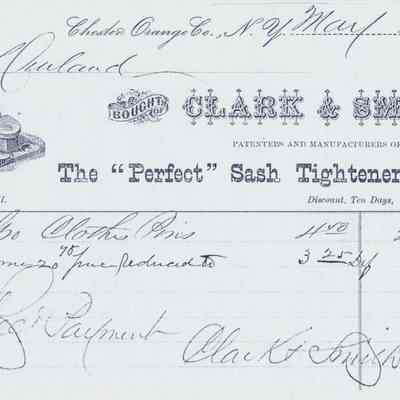 Chester Orange Co., N. Y. May
Newland
BOUGHT OF CLARK & SM
PATENTERS AND MANUFACTURERS OF
The "Perfect" Sash Tightener
Discount, Ten Days,
Clothes Pins 4.50
75 reduced to 3 25
Payment
Clark & Smith